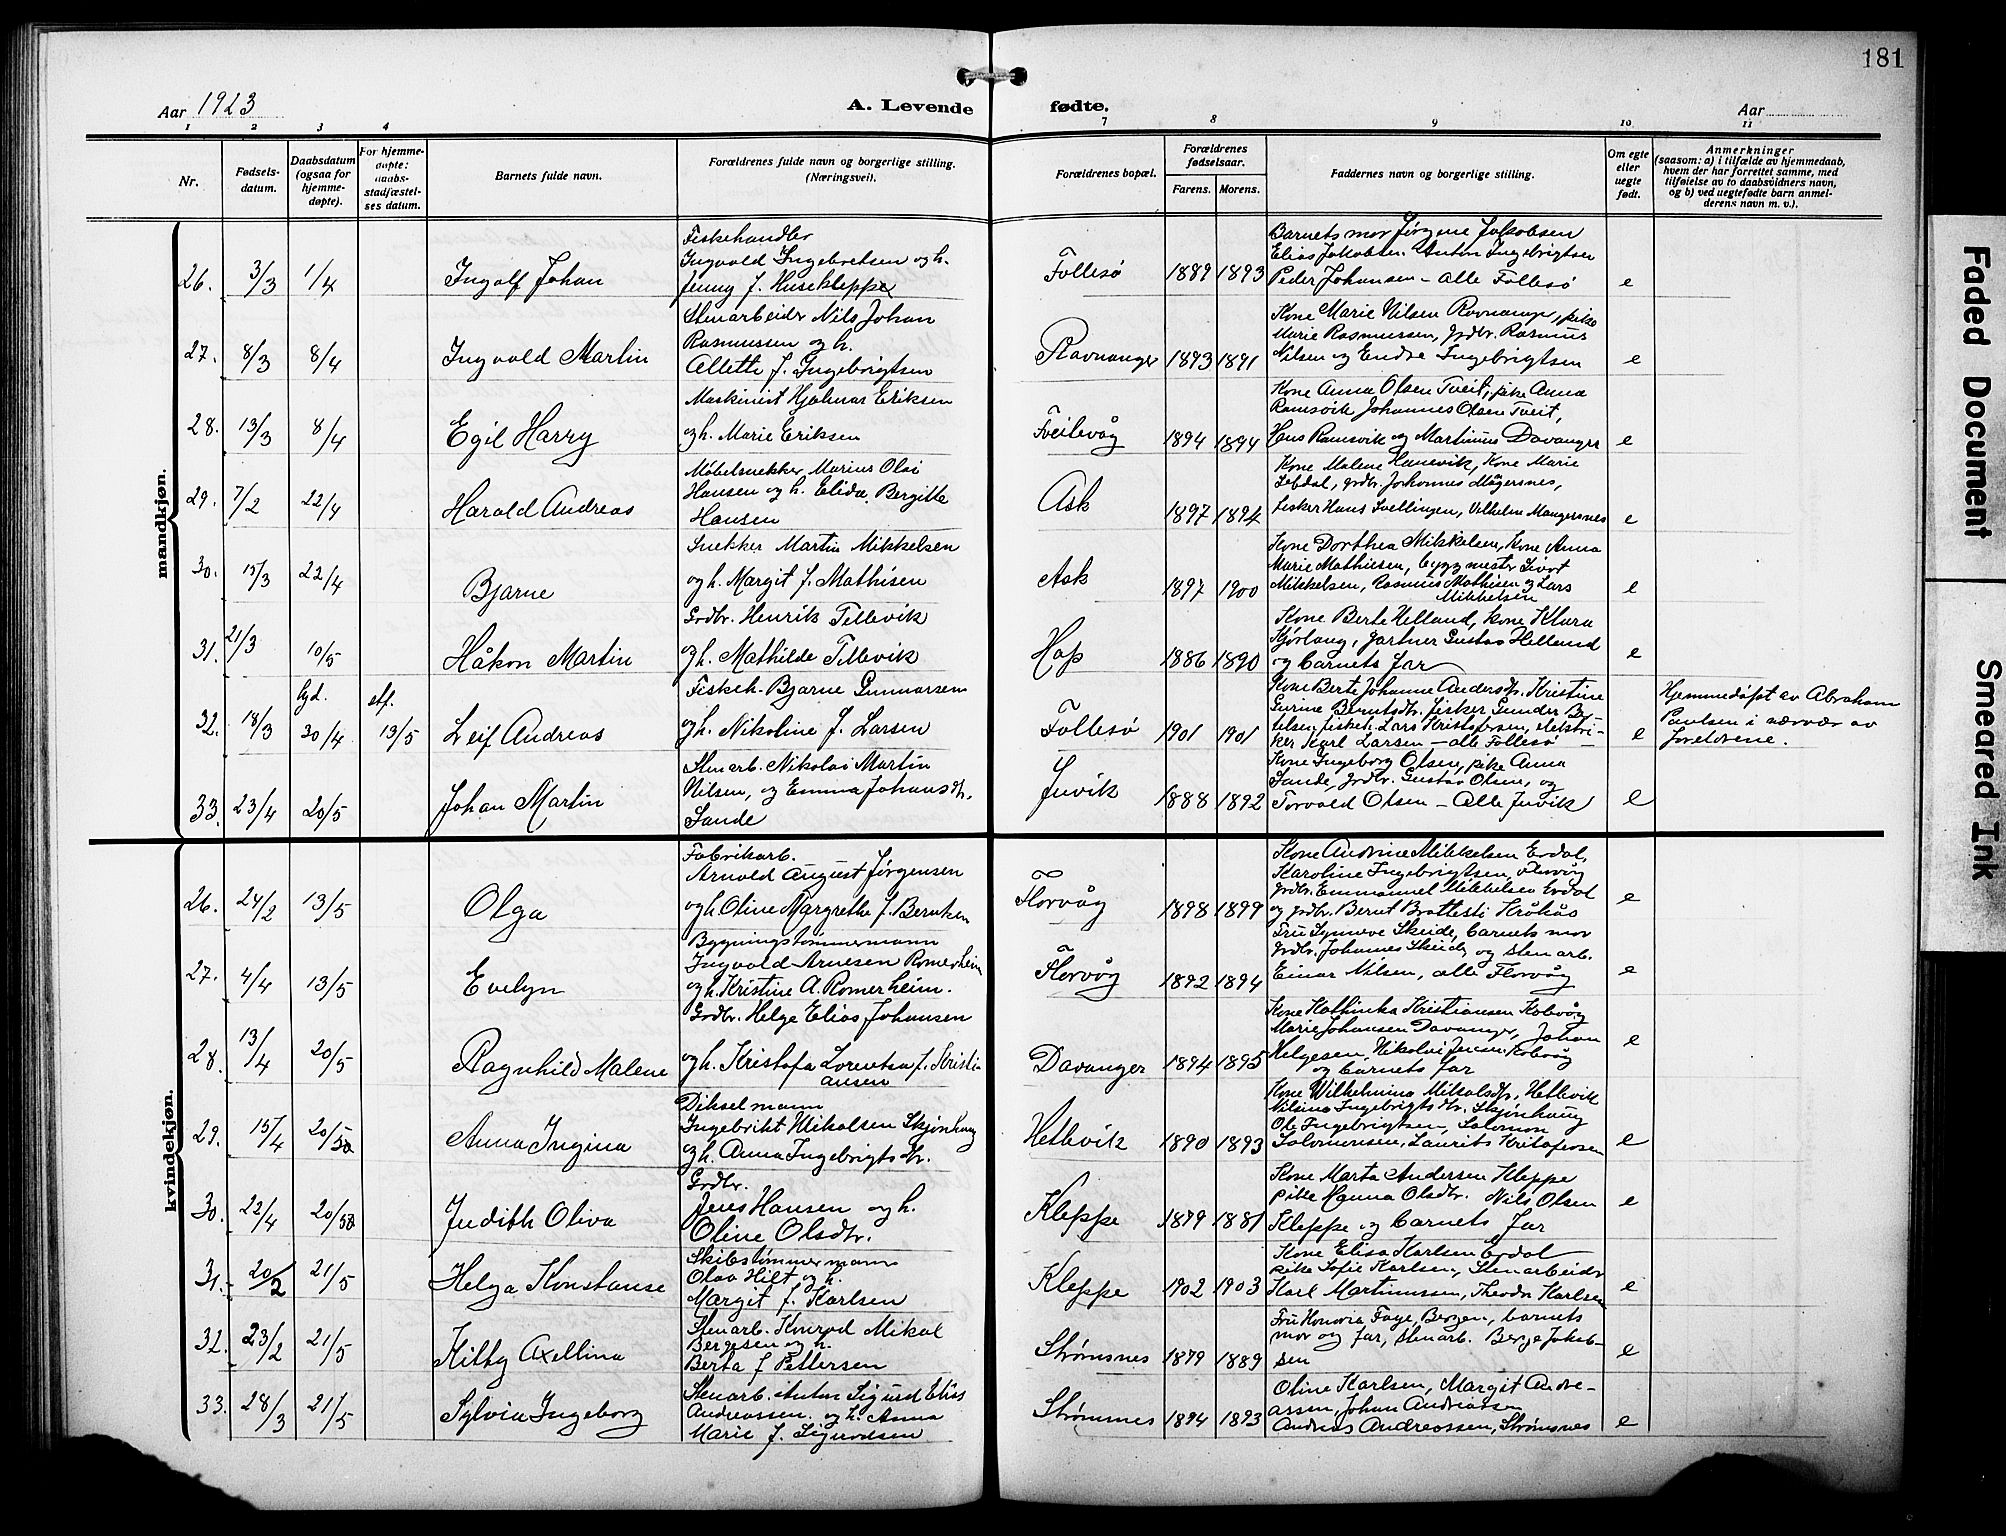 181
Aar 1923
A. Levende fødte.
Aar
1 2 3 4 7 8 9 10 11
Nr.
Fødsels-
datum.
Daabsdatum
(ogsaa for
hjemme-
døpte).
For hjemme-
døpte:
daabs-
stadfæstel-
ses datum.
Barnets fulde navn.
Forældrenes fulde navn og borgerlige stilling.
(Næringsvei).
Forældrenes bopæl.
Forældrenes
fødselsaar.
Farens. Morens.
Faddernes navn og borgerlige stilling.
Om egte
eller
uegte
født.
Anmerkninger
(saasom: a) i tilfælde av hjemmedaab,
hvem der har forrettet samme, med
tilføielse av to daabsvidners navn,
og b) ved uegtefødte barn anmel-
derens navn m. v.).
mandkjøn.
26. 3/3 1/4 Ingolf Johan
Fiskehandler
Ingvald Ingebretsen og h.
Jenny f. Husekleppe
Follesø 1889 1893
Barnets mor Jørgine Jakobsen
Elias Jakobsen. Anton Ingebrigtsen
Peder Johansen - alle Follesø
e
27. 8/3 8/4 Ingvald Martin
Stenarbeider Nils Johan
Rasmussen og h.
Allette f. Ingebrigtsen
Ravnanger 1893 1891
Kone Marie Nilsen Ravnanger, pike
Marie Rasmussen, grdbr. Rasmus
Nilsen og Endre Ingebrigtsen
e
28. 13/3 8/4 Egil Harry
Maskinist Hjalmar Eriksen
og h. Marie Eriksen
Tveitevåg 1894 1894
Kone Anna Olsen Tveit, pike Anna
Ramsvik, Johannes Olsen Tveit,
Hans Ramsvik og Martinus Davanger
e
29. 7/2 22/4 Harald Andreas
Møbelsnekker Marius Olai
Hansen og h. Elida Bergitte
Hansen
Ask 1897 1894
Kone Malene Hanevik, Kone Marie
grdbr. Johannes Mågersnes,
fisker Hans Vilhelm Mangersnes
e
30. 15/3 22/4 Bjarne
Snekker Martin Mikkelsen
og h. Margit f. Mathisen
Ask 1897 1900
Kone Dorthea Mikkelsen, Kone Anna
Marie Mathiesen, byggmester Sivert
Mikkelsen, Rasmus Mathisen og Lars
Mikkelsen
e
31. 21/3 10/5 Håkon Martin
Grdbr. Henrik Tellevik
og h. Mathilde Tellevik
Hop 1886 1890
Kone Berte Helland, kone Klara
gartner Gustav Helland
og barnets far
e
32. 18/3 hjd. 30/4 stf. 13/5 Leif Andreas
Fiskeh. Bjarne Gunnarsen
og h. Nikoline f. Larsen
Follesø 1901 1901
Kone Berte Johanne Andersdtr. Kristine
Gurine Berntsdtr. fisker Gunder
fiskeh. Lars Kristofersen, elektri-
ker Karl Larsen - alle Follesø
e
Hjemmedøpt av Abraham
Paulsen i nærvær av
foreldrene.
33. 23/4 20/5 Johan Martin
Stenarb. Nikolai Martin
Nilsen, og Emma Johansdtr.
Sande
Juvik 1888 1892
Kone Ingeborg Olsen, pike Anna
Sande, grdbr. Gustav Olsen, og
Torvald Olsen - Alle Juvik
e
kvindekjøn.
26. 24/2 13/5 Olga
Fabrikarb.
Arnold August Jørgensen
og h. Oline Margrethe f. Berntsen
Florvåg 1898 1899
Kone Andrine Mikkelsen Erdal,
Karoline Ingebrigtsen, Florvåg
grdbr. Emmanuel Mikkelsen Erdal
og grdbr. Bernt Brattesti Kråkås
e
27. 4/4 13/5 Evelyn
Bygningstømmermann
Ingvald Arnesen Romerheim
og h. Kristine A. Romerheim.
Florvåg 1892 1894
Fru Synneve Skeide, barnets mor
grdbr. Johannes Skeide og stenarb.
Einar Nilsen, alle Florvåg
e
28. 13/4 20/5 Ragnhild Malene
Grdbr. Helge Elias Johansen
og h. Kristofa Lorentsa f. Kristi-
ansen
Davanger 1894 1895
Kone Kathinka Kristiansen Kobevåg
Marie Johansen Davanger, Johan
Helgesen, Nikolai Jensen Kobevåg
og barnets far
e
29. 15/4 20/5 Anna Ingina
Dikselmann
Ingebrikt Mikalsen Skjønhaug
og h. Anna Ingebrigtsdtr.
Hetlevik 1890 1893
Kone Wilhelmina Mikalsdtr, Hetlevik
Nilsina Ingebrigtsdtr. Skjønhaug
Ole Ingebrigtsen, Salomon
Salomonsen, Laurits Kristofersen
e
30. 22/4 20/5 Judith Oliva
Grdbr.
Jens Hansen og h.
Oline Olsdtr.
Kleppe 1879 1881
Kone Marta Andersen Kleppe
pike Hanna Olsdtr. Nils Olsen
Kleppe og barnets far
e
31. 20/2 21/5 Helga Konstanse
Skibstømmermann
Olav Hilt og h.
Margit f. Karlsen
Kleppe 1902 1903
Kone Elisa Karlsen Erdal
pike Sofie Karlsen, Stenarbeider
Karl Martinussen, Theodor Karlsen
e
32. 23/2 21/5 Kitty Axellina
Stenarb. Konrad Mikal
Bergesen og h.
Berta f. Pettersen
Strømsnes 1879 1889
Fru Honoria Faye, Bergen, barnets
mor og far, stenarb. Berge Jakob-
sen
e
33. 28/3 21/5 Sylvia Ingeborg
Stenarb. Anton Sigurd Elias
Andreassen og h. Anna
Marie f. Sigurdsen
Strømsnes 1894 1893
Oline Karlsen, Margit Andre-
assen, Johan Andreassen
Andreas Andreassen, Strømsnes
e
Faded Document
Smeared Ink